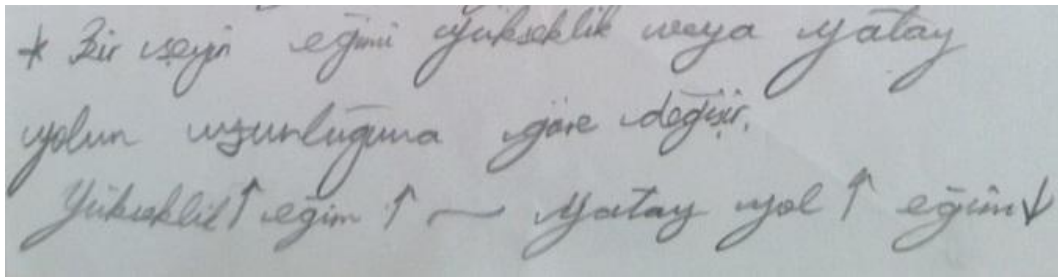 * Bir şeyin eğimi yükseklik veya yatay
yolun uzunluğuna göre değişir.
Yükseklik ↑ eğim ↑ — Yatay yol ↑ eğim ↓